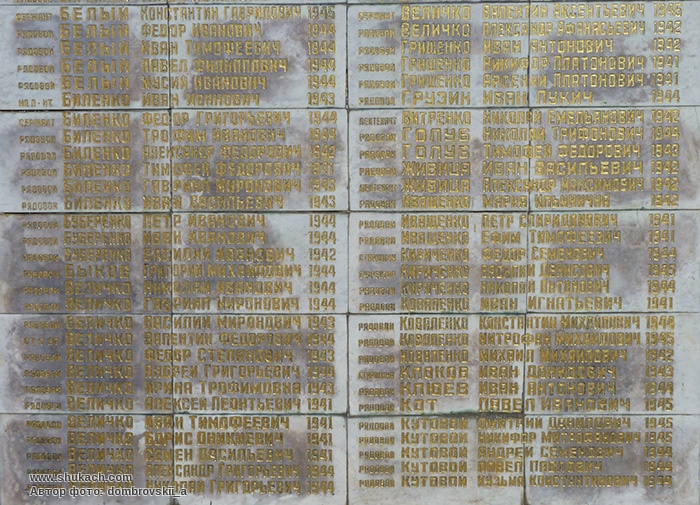 СЕРЖАНТ БЕЛЫЙ КОНСТАНТИН ГАВРИЛОВИЧ 1945
РЯДОВОЙ БЕЛЫЙ ФЕДОР ИВАНОВИЧ 1944
РЯДОВОЙ БЕЛЫЙ ИВАН ТИМОФЕЕВИЧ 1944
РЯДОВОЙ БЕЛЫЙ ПАВЕЛ ФИЛИППОВИЧ
РЯДОВОЙ БЕЛЫЙ ИВАНОВИЧ 1944
МЛ.Л-НТ. БИЛЕНКО ИВАН ИВАНОВИЧ 1943
СЕРЖАНТ БИЛЕНКО ФЕДОР ГРИГОРЬЕВИЧ 1944
РЯДОВОЙ БИЛЕНКО ТРОФИМ ИВАНОВИЧ
РЯДОВОЙ БИЛЕНКО АЛЕКСАНДР ФЕДОРОВИЧ 1942
РЯДОВОЙ БИЛЕНКО ТИМОФЕЙ ФЕДОРОВИЧ
РЯДОВОЙ БИЛЕНКО МИРОНОВИЧ
РЯДОВОЙ БИЛЕНКО ИВАН ВАСИЛЬЕВИЧ 1943
РЯДОВОЙ БУБЕРЕНКО ПЕТР ИВАНОВИЧ 1944
РЯДОВОЙ БУБЕРЕНКО ИВАН ИВАНОВИЧ 1944
БУБЕРЕНКО ВАСИЛИЙ ИВАНОВИЧ 1942
РЯДОВОЙ БЫКОВ ГРИГОРИЙ МИХАЙЛОВИЧ 1944
РЯДОВОЙ ВЕЛИЧКО НИКОЛАЙ ИВАНОВИЧ 1944
РЯДОВОЙ ВЕЛИЧКО ГАВРИИЛ МИРОНОВИЧ 1944
РЯДОВОЙ ВЕЛИЧКО ВАСИЛИЙ МИРОНОВИЧ 1943
ВЕЛИЧКО ВАЛЕНТИН ФЕДОРОВИЧ 1944
РЯДОВОЙ ВЕЛИЧКО ФЕДОР СТЕПАНОВИЧ 1943
РЯДОВОЙ ВЕЛИЧКО АНДРЕЙ ГРИГОРЬЕВИЧ
РЯДОВОЙ ВЕЛИЧКО ИРИНА ТРОФИМОВНА 1943
РЯДОВОЙ ВЕЛИЧКО АЛЕКСЕЙ ЛЕОНТЬЕВИЧ 1941
РЯДОВОЙ ВЕЛИЧКО ИВАН ТИМОФЕЕВИЧ 1941
РЯДОВОЙ ВЕЛИЧКО БОРИС 1941
РЯДОВОЙ ВЕЛИЧКО СЕМЕН ВАСИЛЬЕВИЧ 1941
ВЕЛИЧКО АЛЕКСАНДР ГРИГОРЬЕВИЧ 1944
ВЕЛИЧКО НИКОЛАЙ ГРИГОРЬЕВИЧ 1944
СЕРЖАНТ ВЕЛИЧКО ВАЛЕНТИН АКСЕНТЬЕВИЧ 1945
РЯДОВОЙ ВЕЛИЧКО АЛЕКСАНДР АФАНАСЬЕВИЧ 1942
РЯДОВОЙ ГРИЩЕНКО ИВАН АНТОНОВИЧ 1942
РЯДОВОЙ ГРИЩЕНКО НИКИФОР ПЛАТОНОВИЧ 1941
РЯДОВОЙ ГРИЩЕНКО АРСЕНИЙ ПЛАТОНОВИЧ 1941
РЯДОВОЙ ГРУЗИН ИВАН ЛУКИЧ 1944
ЛЕЙТЕНАНТ ВИТРЕНКО НИКОЛАЙ ЕМЕЛЬЯНОВИЧ 1942
РЯДОВОЙ ГОЛУБ НИКОЛАЙ ТРИФОНОВИЧ 1944
РЯДОВОЙ ГОЛУБ ТИМОФЕЙ ФЕДОРОВИЧ 1943
РЯДОВОЙ ЖИВИЦА ИВАН ВАСИЛЬЕВИЧ
ЖИВИЦА АЛЕКСАНДР МАКСИМОВИЧ
РЯДОВОЙ ИВАЩЕНКО МАРИЯ 1942
РЯДОВОЙ ИВАЩЕНКО ПЕТР СПИРИДОНОВИЧ 1941
РЯДОВОЙ ИВАЩЕНКО ЕФИМ ТИМОФЕЕВИЧ 1941
РЯДОВОЙ КИРИЧЕНКО ФЕДОР СЕМЕНОВИЧ 1944
КИРИЧЕНКО ДЕНИСОВИЧ
РЯДОВОЙ КИРИЧЕНКО НИКОЛАЙ ИВАНОВИЧ 1944
РЯДОВОЙ КОВАЛЕНКО ИВАН ИГНАТЬЕВИЧ 1941
РЯДОВОЙ КОВАЛЕНКО КОНСТАНТИН МИХАЙЛОВИЧ 1944
РЯДОВОЙ КОВАЛЕНКО МИТРОФАН МИХАЙЛОВИЧ 1945
РЯДОВОЙ КОВАЛЕНКО МИХАИЛ МИХАЙЛОВИЧ 1942
КЛЮКОВ ИВАН ДАНИЛОВИЧ 1943
РЯДОВОЙ КЛЮЕВ ИВАН АНТОНОВИЧ 1944
РЯДОВОЙ КОТ ПАВЕЛ ИВАНОВИЧ 1945
РЯДОВОЙ КУТОВОЙ ДМИТРИЙ ДАНИЛОВИЧ 1945
РЯДОВОЙ КУТОВОЙ НИКИФОР МИТРОФАНОВИЧ 1945
РЯДОВОЙ КУТОВОЙ АНДРЕЙ СЕМЕНОВИЧ 1944
РЯДОВОЙ КУТОВОЙ ПАВЕЛ 1944
РЯДОВОЙ КУТОВОЙ КУЗЬМА КОНСТАНТИНОВИЧ
www.shukach.com
Автор фото: dombrovskii_a